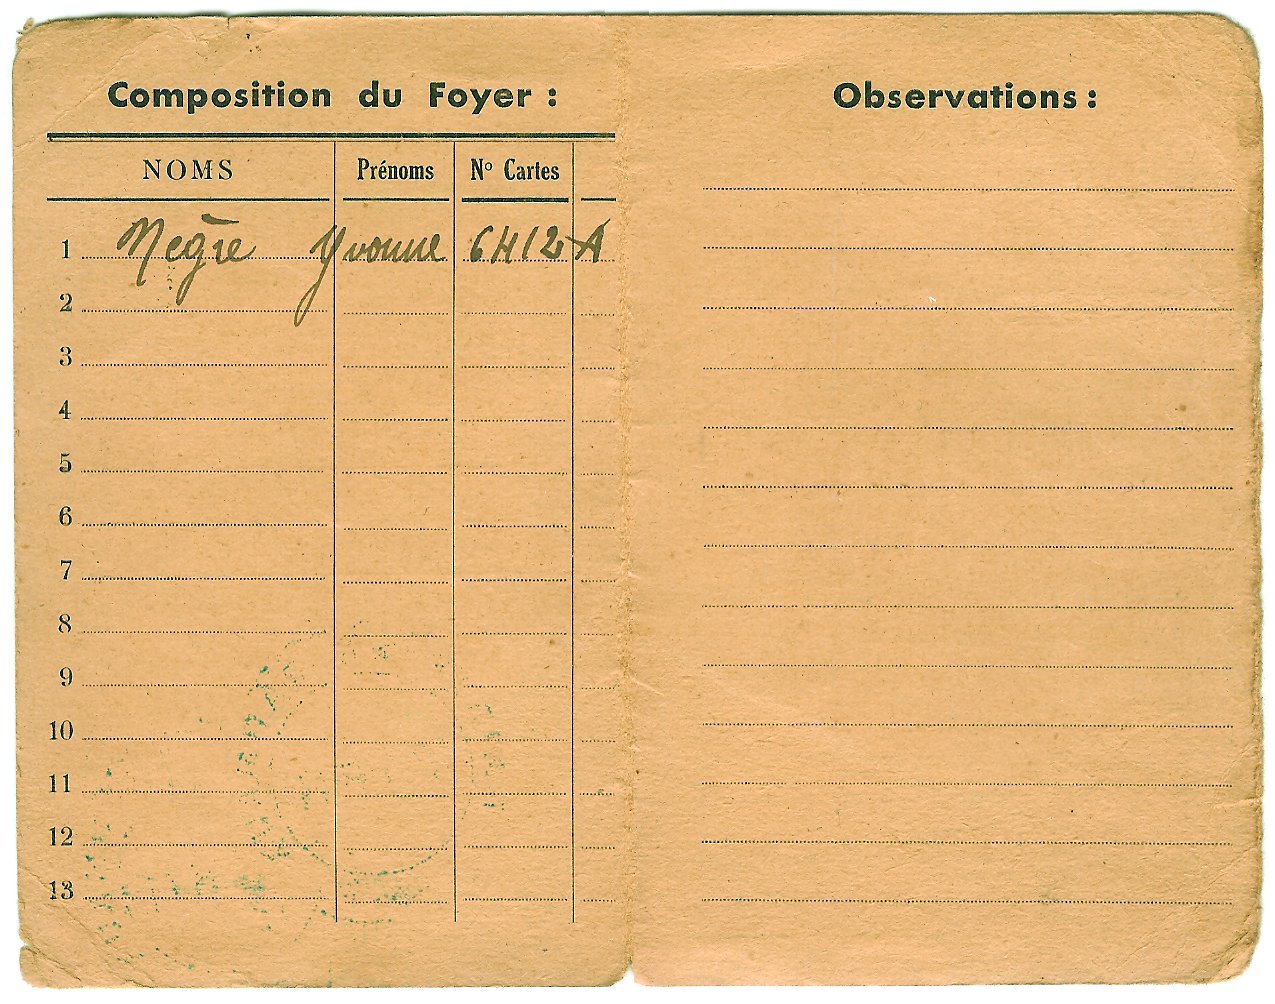 Composition du Foyer :
NOMS Prénoms N° Cartes
1 Negre Yvonne 6412 A
2
3
4
5
6
7
8
9
10
11
12
13
Observations :